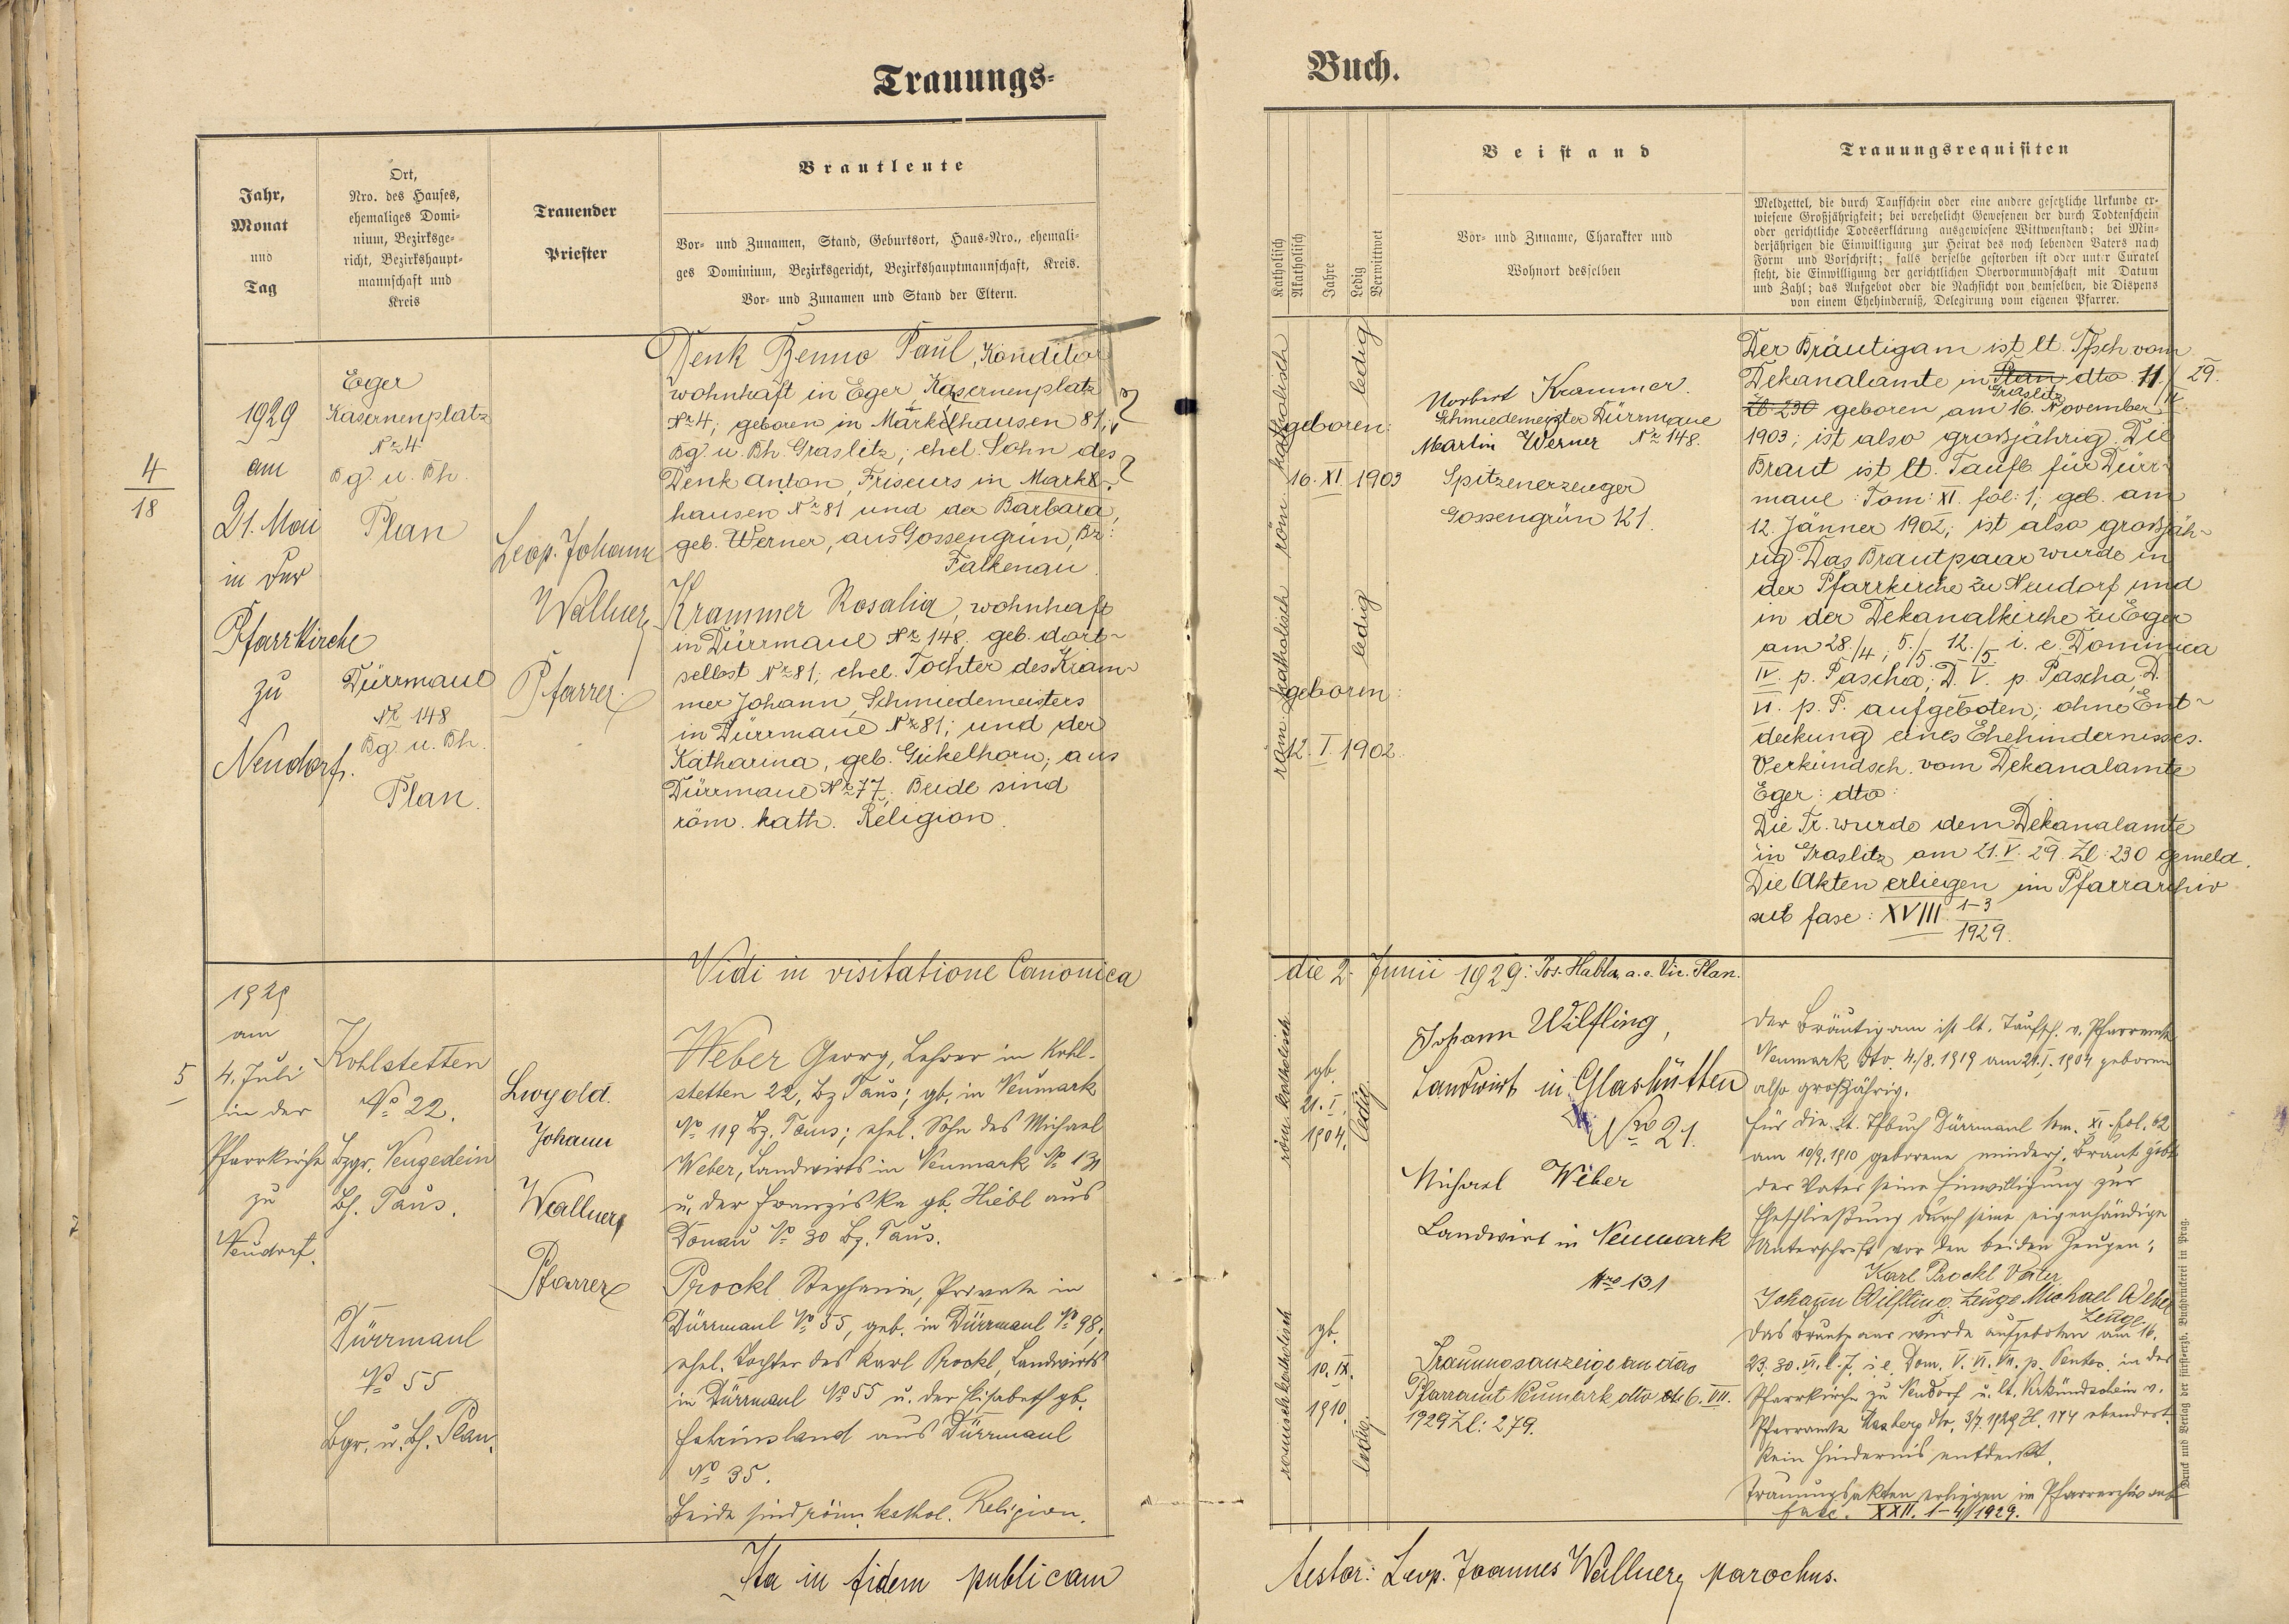 Trauungs-
Jahr,
Monat
und
Tag
Ort,
Nro. des Hauses,
ehemaliges Domi-
nium, Bezirksge-
richt, Bezirkshaupt-
mannschaft und
Kreis
Trauender
Priester
Brautleute
Vor- und Zunamen, Stand, Geburtsort, Haus-Nro., ehemali-
ges Dominium, Bezirksgericht, Bezirkshauptmannschaft, Kreis.
Vor- und Zunamen und Stand der Eltern.
4
18
1929
am
21. Mai
in der
Pfarrkirche
zu
Neudorf.
Eger
Kasernenplatz
No 4
Bg. u. Bh.
Plan
Dürrmaul
No 148
Bg. u. Bh.
Plan.
Leop. Johann
Wallner
Pfarrer.
Denk Benno Paul, Konditor
wohnhaft in Eger, Kasernenplatz
No 4; geboren in Markhausen 81;
Bg. u. Bh. Graslitz; ehel. Sohn des
Denk Anton, Friseurs in Mark-
hausen No 81 und der Barbara,
geb. Werner, aus Gossengrün, Bz:
Falkenau.
Krammer Rosalia, wohnhaft
in Dürrmaul No 148, geb. dort-
selbst No 81; ehel. Tochter des Kram-
mer Johann, Schmiedemeisters
in Dürrmaul No 81; und der
Katharina, geb. Gickelhorn; aus
Dürrmaul No 77. Beide sind
röm. kath. Religion.
Vidi in visitatione Canonica
5
1929
am
4. Juli
in der
Pfarrkirche
zu
Neudorf.
Kohlstetten
No 22.
Bzgr. Neugedein
Bh. Taus.
Dürrmaul
No 55
Bgr. u. Bh. Plan.
Leopold
Johann
Wallner
Pfarrer
Weber Georg, Lehrer in Kohl-
stetten 22, Bz Taus; gb. in Neumark
No 119 Bz. Taus; ehel. Sohn des Michael
Weber, Landwirts in Neumark No 131
u. der Franziska gb. Hiebl aus
Donau No 30 Bz. Taus.
Prockl Stephanie, Private in
Dürrmaul No 55, geb. in Dürrmaul No 98,
ehel. Tochter des Karl Prockl, Landwirts
in Dürrmaul No 55 u. der Elisabeth gb.
aus Dürrmaul
No 35.
Beide sind röm. kathol. Religion.
Ita in fidem publicam
Buch.
Katholisch
Akatholisch
Jahre
Ledig
Verwittwet
Beistand
Vor- und Zuname, Charakter und
Wohnort desselben
Trauungsrequisiten
Meldzettel, die durch Taufschein oder eine andere gesetzliche Urkunde er-
wiesene Großjährigkeit; bei verehelicht Gewesenen der durch Todtenschein
oder gerichtliche Todeserklärung ausgewiesene Wittwenstand; bei Min-
derjährigen die Einwilligung zur Heirat des noch lebenden Vaters nach
Form und Vorschrift; falls derselbe gestorben ist oder unter Curatel
steht, die Einwilligung der gerichtlichen Obervormundschaft mit Datum
und Zahl; das Aufgebot oder die Nachsicht von demselben, die Dispens
von einem Ehehinderniß, Delegirung vom eigenen Pfarrer.
röm. katholisch
geboren:
16. XI. 1903
ledig
röm. katholisch
geboren:
12. I. 1902.
ledig
Norbert Krammer.
Schmiedemeister Dürrmaul
No 148.
Martin Werner
Spitzenerzeuger
Gossengrün 121.
Der Bräutigam ist lt. Tfsch vom
Dekanalamte in Plan Graslitz dto 11. 29.
Zl. 230 geboren am 16. November
1903; ist also großjährig. Die
Braut ist lt. Taufb. für Dürr-
maul: Tom: XI. fol: 1; geb. am
12. Jänner 1902; ist also großjäh-
rig. Das Brautpaar wurde in
der Pfarrkirche zu Neudorf und
in der Dekanalkirche zu Eger
am 28./4; 5./5. 12./5 i. e. Dominica
IV. p. Pascha; D. V. p. Pascha, D.
VI. p. P. aufgeboten; ohne Ent-
deckung eines Ehehindernisses.
Verkündsch. vom Dekanalamte
Eger: dto:
Die Tr. wurde dem Dekanalamte
in Graslitz am 21. V. 29. Zl: 230 gemeld.
Die Akten erliegen im Pfarrarchiv
sub fasc: XVIII 1-3
1929.
die 2. Junii 1929: Jos. Habla, a. e. Vic. Plan.
röm. katholisch
gb.
21. I.
1904.
ledig
römisch katholisch
gb.
10. IX.
1910.
ledig.
Johann Wilfling,
Landwirt in Glashütten
Nro 21.
Michael Weber
Landwirt in Neumark
Nro 131
Trauungsanzeige an das
Pfarramt Neumark dto 6. VII.
1929 Zl: 279.
Der Bräutigam ist lt. Taufsch. v. Pfarramte
Neumark dto. 4./8. 1919 am 21. I. 1904 geboren
also großjährig.
Für die lt. Tfbuch Dürrmaul tom. XI. fol. 62
am 10/9. 1910 geborene minderj. Braut gibt
der Vater seine Einwilligung zur
Eheschließung durch seine eigenhändige
Unterschrift vor den beiden Zeugen:
Karl Prockl Vater
Johann Wilfling. Zeuge Michael Weber
Zeuge
Das Brautpaar wurde aufgeboten am 16.
23. 30. VI. l. J. i. e. Dom. V. VI. VII. p. Pentec. in der
Pfarrkirche zu Neudorf u. lt. Verkündschein v.
Pfarramte dto. 3/7. 1929 Zl. 174 ebendort.
Kein Hindernis entdeckt.
Trauungsakten erliegen im Pfarrarchiv sub
fasc. XXII. 1-4/1929.
Druck und Verlag der fürsterzb. Buchdruckerei in Prag.
Testor: Leop. Joannes Wallner, parochus.